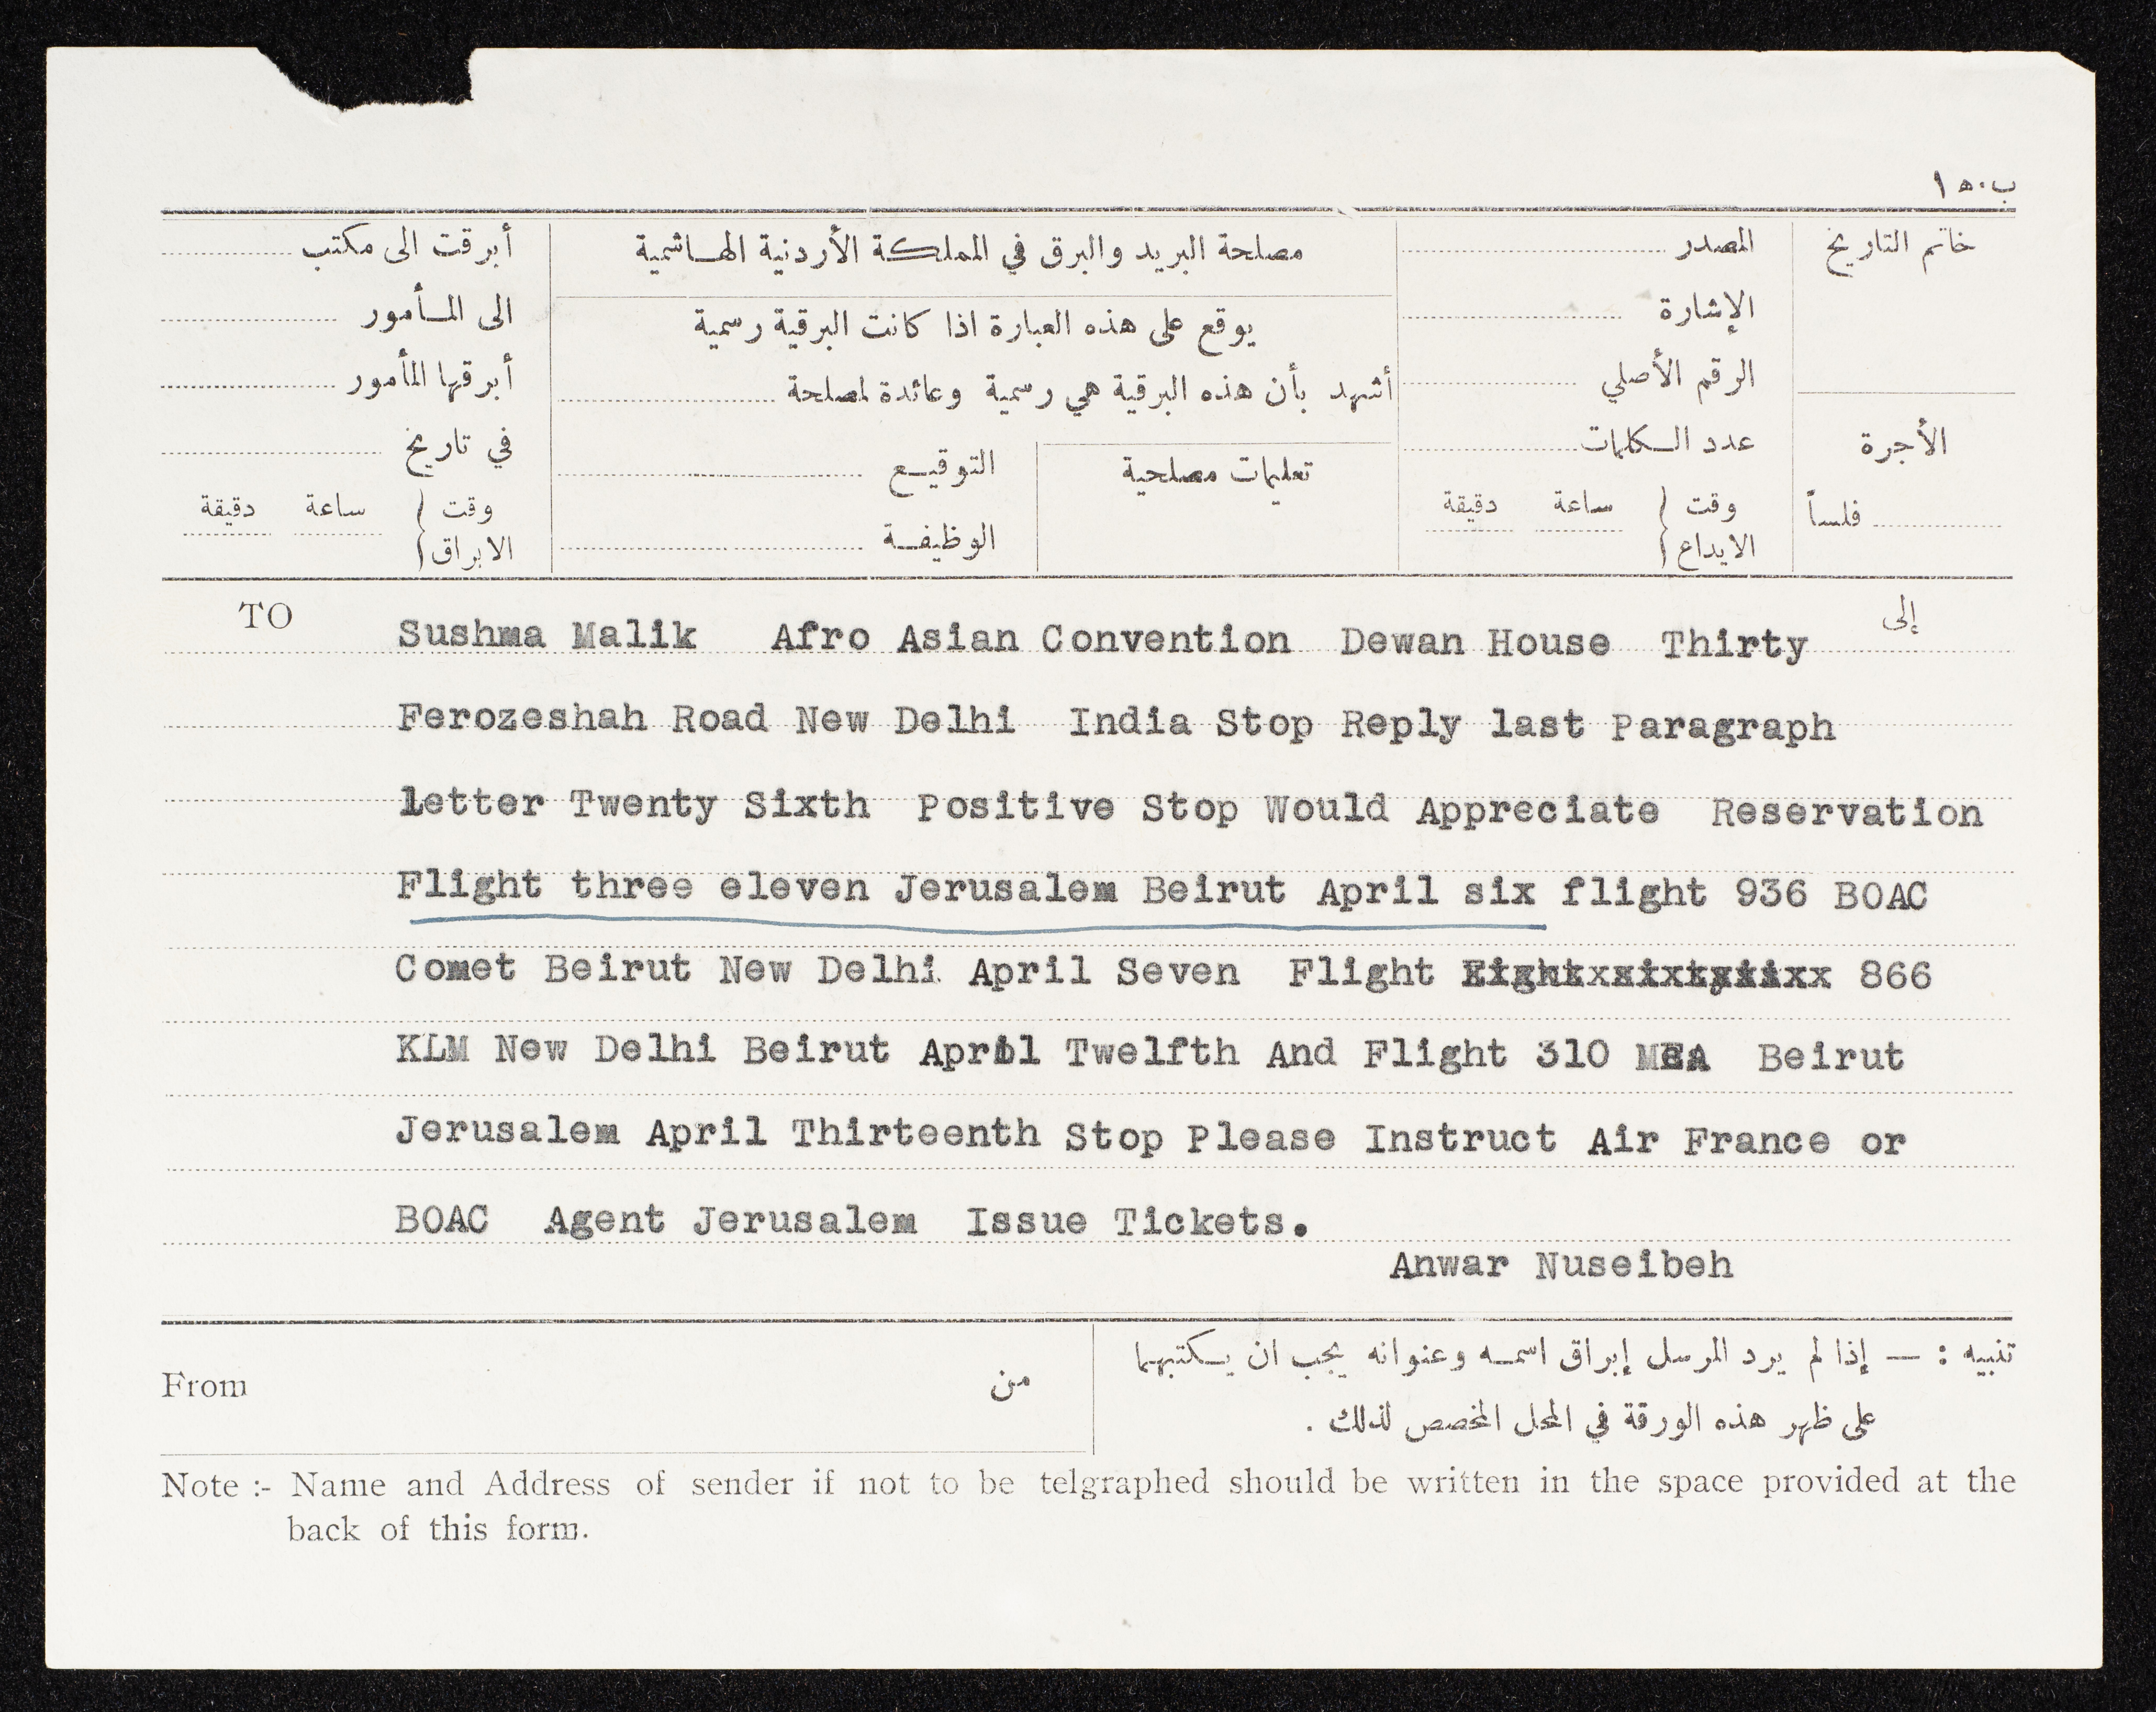 ب.ه ١
خاتم التاريخ
الأجرة
فلساً
المصدر
الإشارة
الرقم الأصلي
عدد الـكلمات
وقت الايداع
ساعة
دقيقة
مصلحة البريد والبرق في المملـكة الأردنية الهـاشمية
يوقع على هذه العبارة اذا كانت البرقية رسمية
أشهد بأن هذه البرقية هي رسمية وعائدة لمصلحة
تعليمات مصلحية
التوقيـع
الوظيفـة
أبرقت الى مكتب
الى المـأمور
أبرقها المأمور
في تاريخ
وقت الابراق
ساعة
دقيقة
TO
إلى
Sushma Malik Afro Asian Convention Dewan House Thirty
Ferozeshah Road New Delhi India Stop Reply last Paragraph
letter Twenty Sixth Positive Stop Would Appreciate Reservation
Flight three eleven Jerusalem Beirut April six flight 936 BOAC
Comet Beirut New Delhi April Seven Flight 866
KLM New Delhi Beirut April Twelfth And Flight 310 MEA Beirut
Jerusalem April Thirteenth Stop Please Instruct Air France or
BOAC Agent Jerusalem Issue Tickets.
Anwar Nuseibeh
From
من
تنبيه : — إذا لم يرد المرسل إبراق اسمـه وعنوانه يجب ان يـكتبهما
على ظهر هذه الورقة في المحل المخصص لذلك .
Note :- Name and Address of sender if not to be telgraphed should be written in the space provided at the
back of this form.